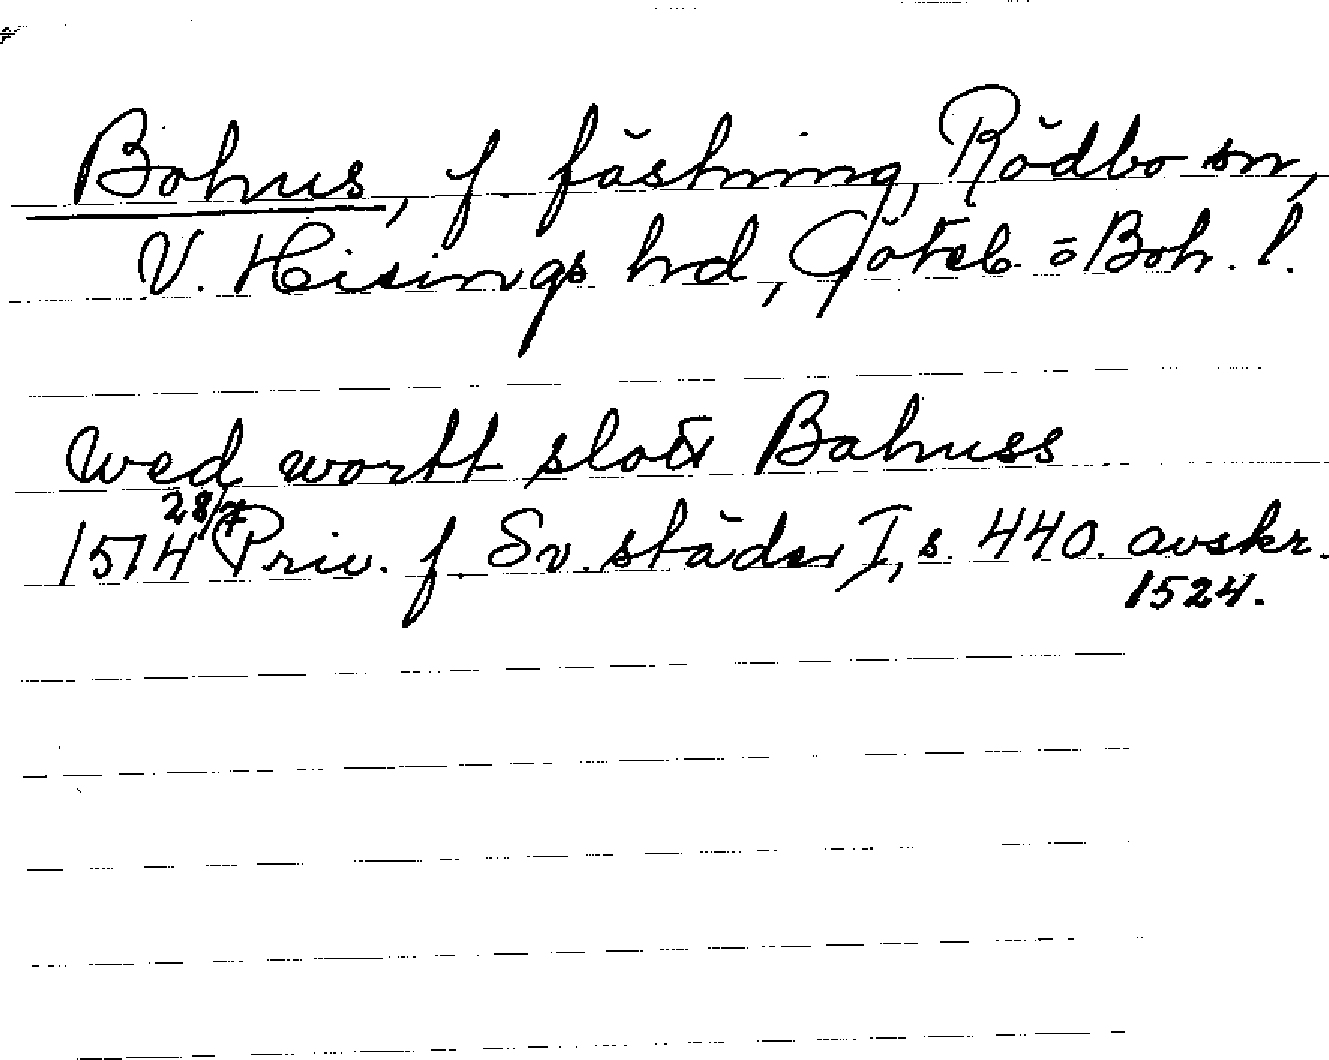 Bohus, f fästning, Rödbo sn,
V. Hisings hd, Göteb. o Boh. l.
wed wortt slott Bahuss
1514 28/7 Priv. f. Sv. städer I, s. 440. avskr.
1524.